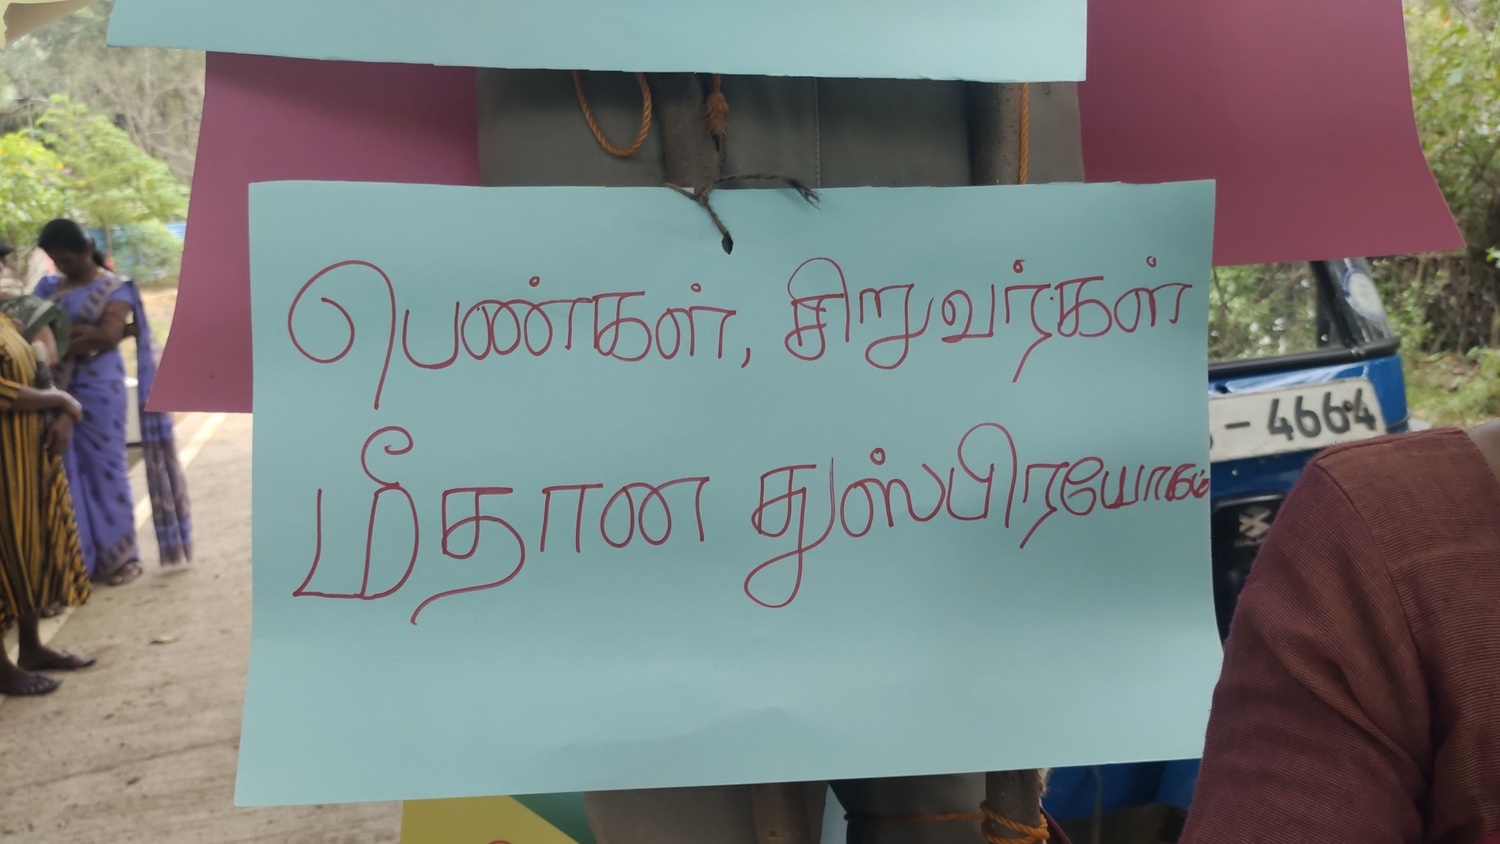 பெண்கள், சிறுவர்கள்
மீதான துஸ்பிரயோகம்
- 4664